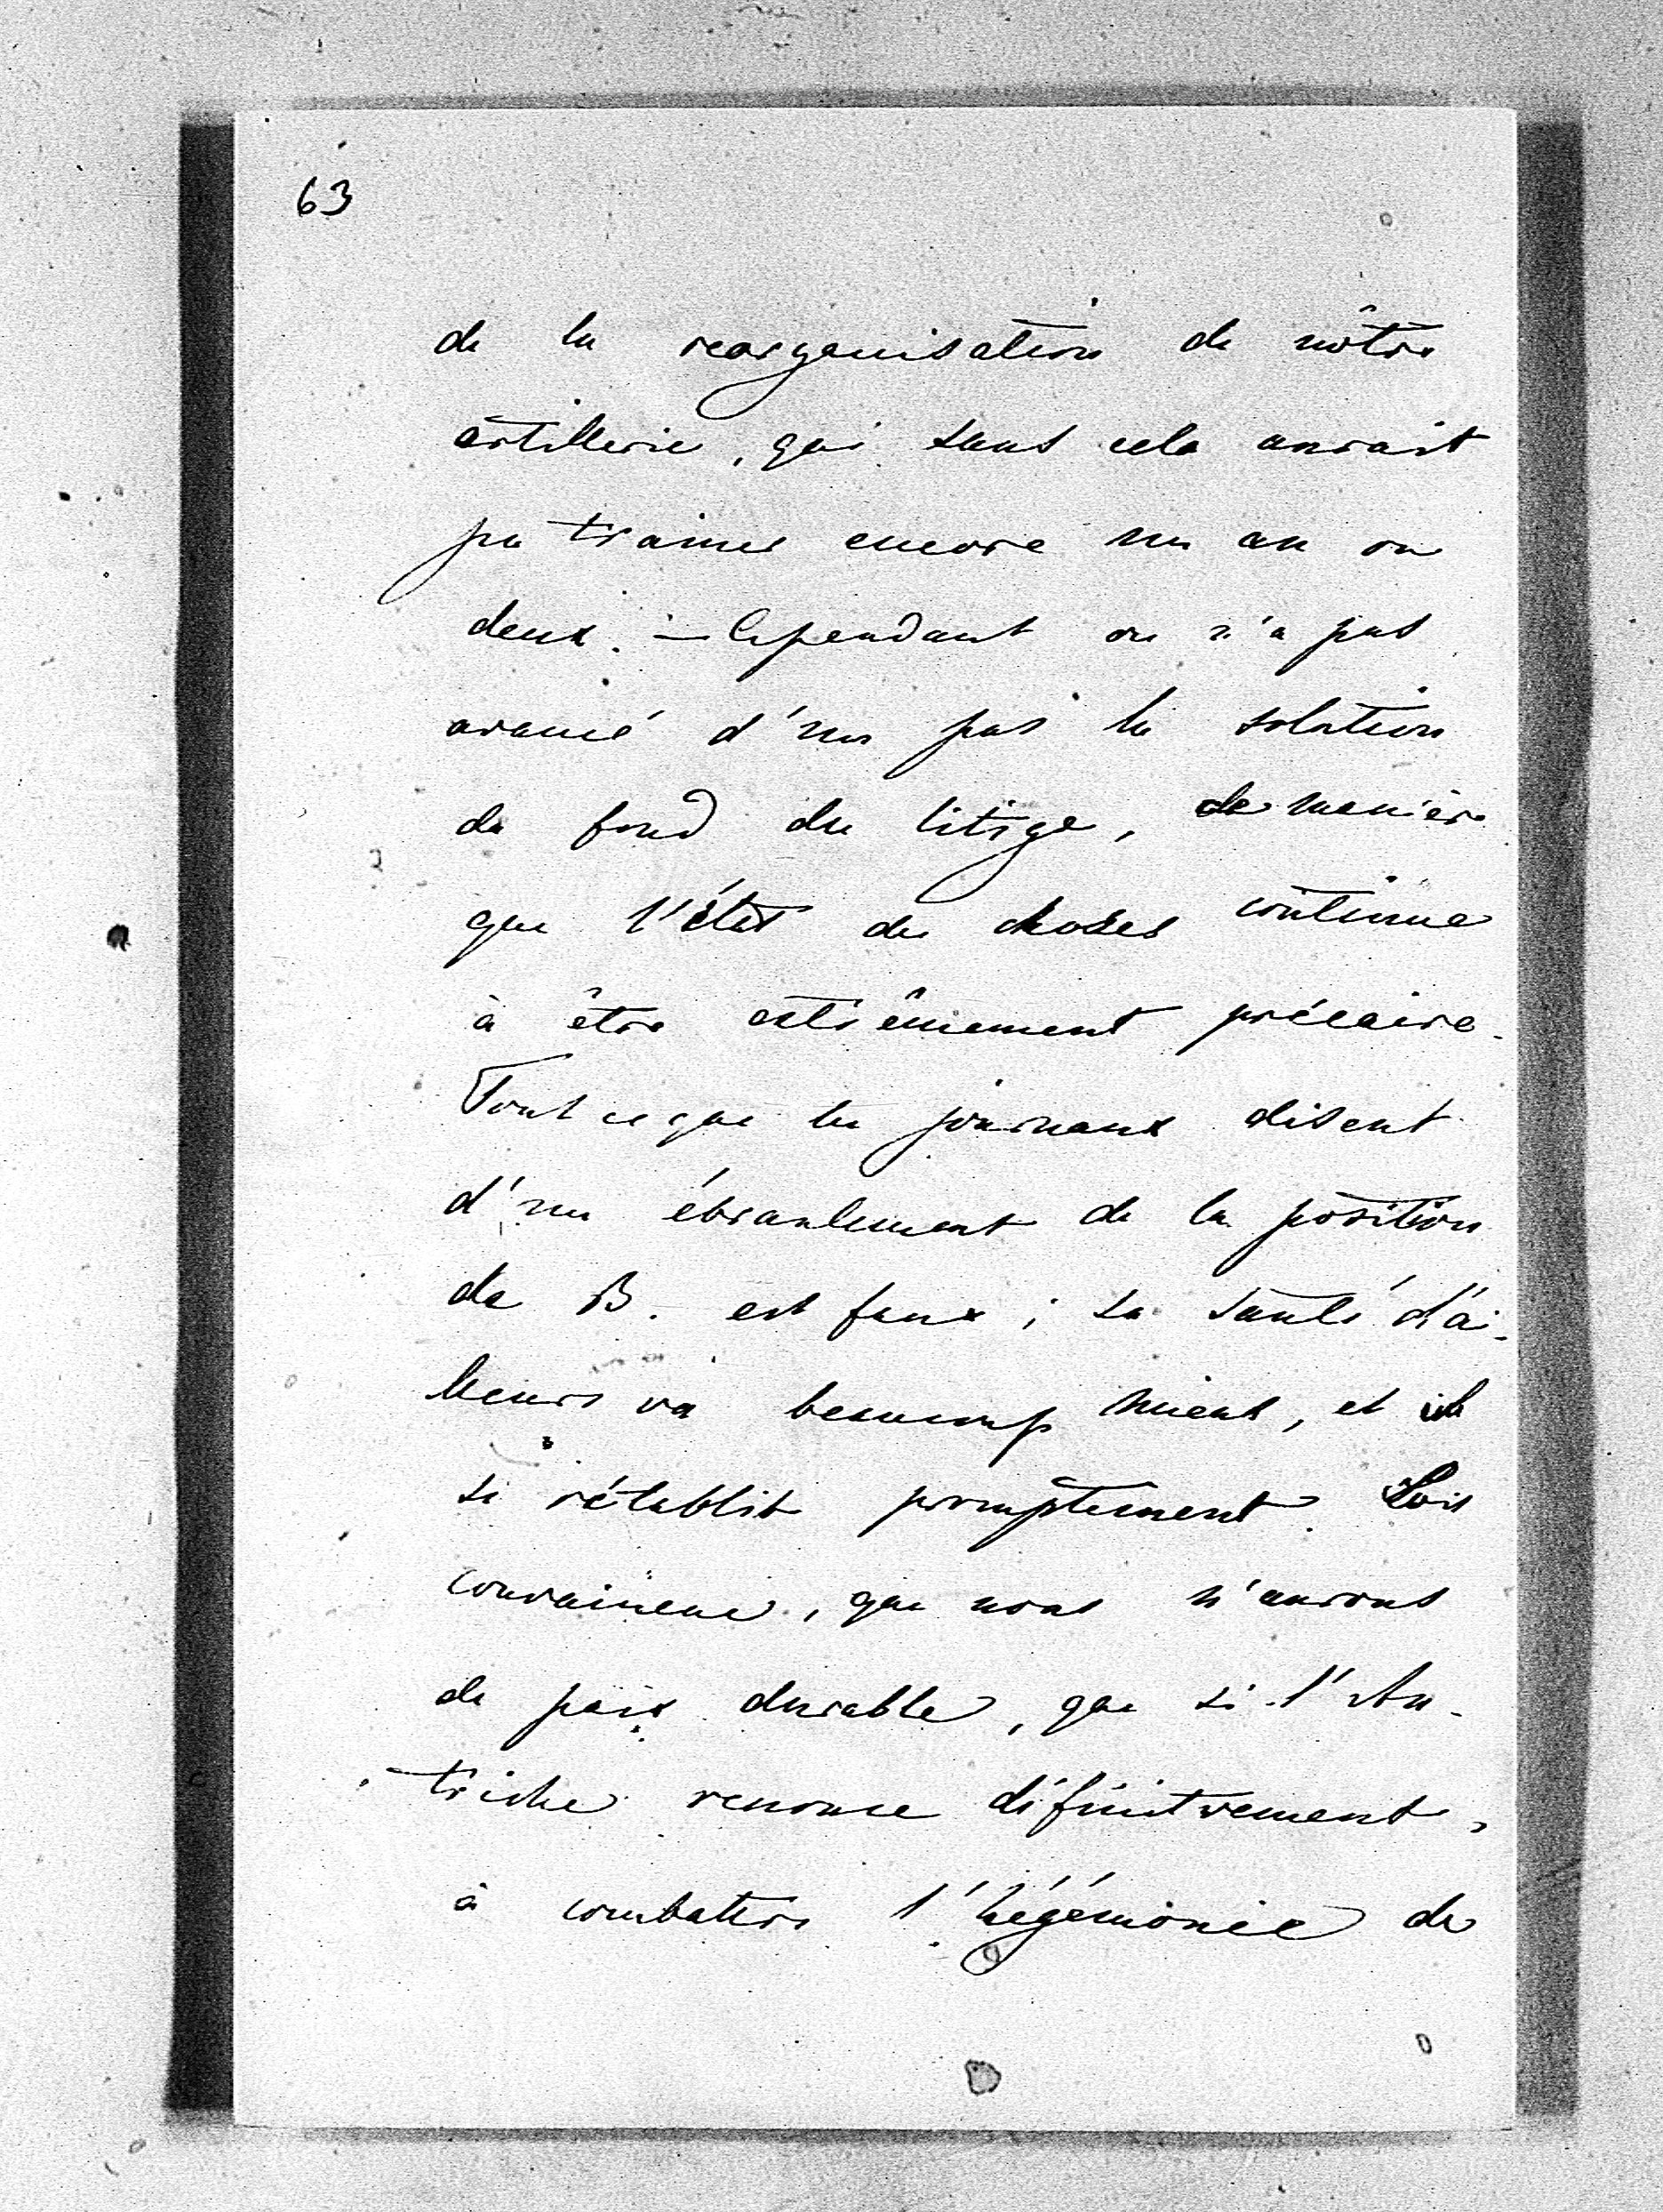 63
de la reorganisation de nôtre
artillerie, qui sans cela aurait
pu trainer encore un an ou
deux. — Cependant on n'a pas
avancé d'un pas la solution
du fond du litige, de manière
que l'état des choses continue
à être extrêmement précaire.
Tout ce que les journaux disent
d'un ébranlement de la position
de B. est faux; sa santé d'ai-
lleurs va beaucoup mieux, et il
se rétablit promptement. Sois
convaincue, que nous n'aurons
de paix durable, que si l'Au-
triche renonce définitivement,
à combattre l'hégémonie de